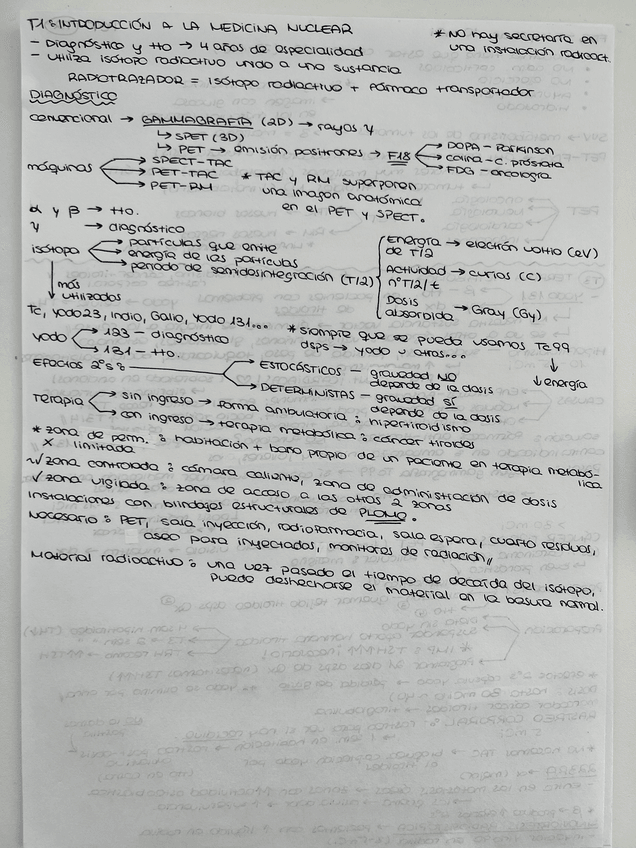 T1: INTRODUCCIÓN A LA MEDICINA NUCLEAR
* No hay secretaria en una instalación radioact.
- Diagnóstico y tto → 4 años de especialidad
- Utiliza isótopo radiactivo unido a una sustancia
RADIOTRAZADOR = isótopo radiactivo + fármaco transportador
DIAGNÓSTICO
convencional → GAMMAGRAFÍA (2D) → rayos γ
↳ SPET (3D)
↳ PET → emisión positrones → F18
DOPA - Parkinson
colina - C. próstata
FDG - oncología
máquinas
SPECT-TAC
PET-TAC
PET-RM
* TAC y RM superponen
una imagen anatómica
en el PET y SPECT.
α y β → tto.
γ → diagnóstico
isótopo
partículas que emite
energía de las partículas
periodo de semidesintegración (T1/2)
Energía → electrón voltio (eV)
de T/2
Actividad → curios (C)
nº T/2/t
Dosis
absorbida → Gray (Gy)
↓ más
utilizados
Tc, yodo 23, Indio, Galio, yodo 131...
* siempre que se pueda usamos Tc99
dsps → yodo u otras...
↓
↓ energía
yodo
123 - diagnóstico
131 - tto.
Efectos 2ºs:
ESTOCÁSTICOS - gravedad NO
depende de la dosis
DETERMINISTAS - gravedad SÍ
depende de la dosis
Terapia
sin ingreso → forma ambulatoria: hipertiroidismo
con ingreso → terapia metabólica: cáncer tiroides
* zona de perm. limitada: habitación + baño propio de un paciente en terapia metabólica
✓ zona controlada: cámara caliente, zona de administración de dosis
✓ zona vigilada: zona de acceso a las otras 2 zonas
Instalaciones con blindajes estructurales de PLOMO.
Necesario: PET, sala inyección, radiofarmacia, sala espera, cuarto residuos,
aseo para inyectados, monitores de radiación,,
Material radioactivo: una vez pasado el tiempo de decaída del isótopo,
puede deshecharse el material en la basura normal.